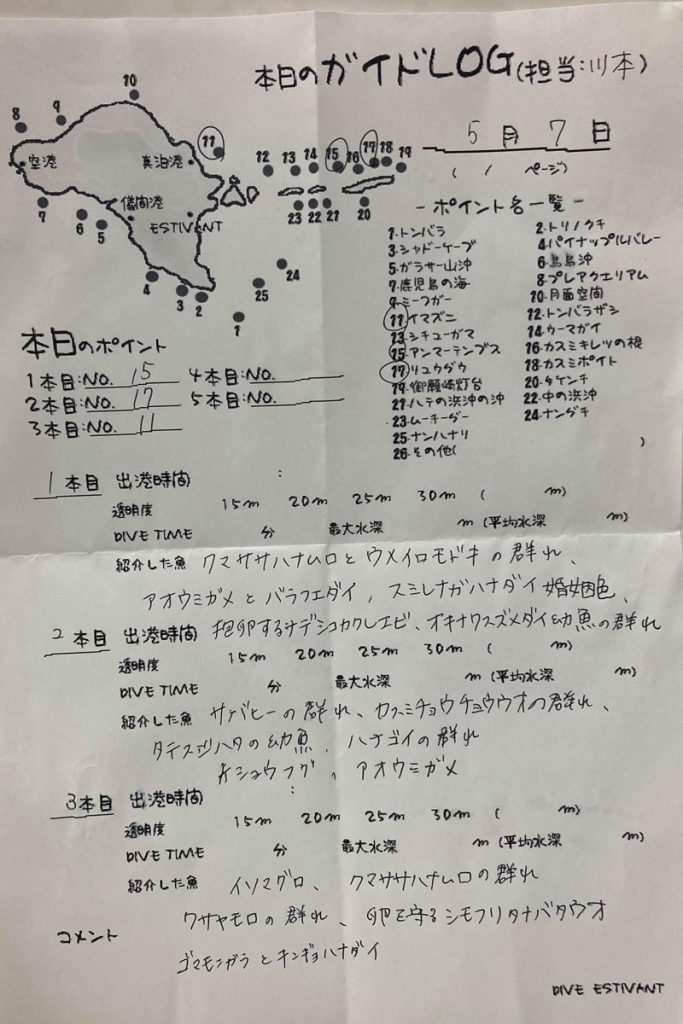 本日のガイドLOG(担当:川本)
5月7日
( / ページ)
10
9
8
11
空港
真泊港
12 13 14 15 16 17 18 19
7
6
5
儀間港
ESTIVANT
23 22 21
20
24
25
4
3
2
1
- ポイント名一覧 -
1.トンバラ 2.トリノクチ
3.シャドーケーブ 4.パイナップルバレー
5.ガラサー山沖 6.鳥島沖
7.鹿児島の海 8.プレアクエリアム
9.ミーフガー 10.月面空間
11.イマズニ 12.トンバラザシ
13.シチューガマ 14.ウーマガイ
15.アンマーテンプス 16.カスミキレツの根
17.リュウダウ 18.カスミポイト
19.御願崎灯台 20.タケンチ
21.ハテの浜沖の沖 22.中の浜沖
23.ムーチーダー 24.ナンダキ
25.ナンハナリ
26.その他( )
本日のポイント
1本目:NO. 15 4本目:NO.
2本目:NO. 17 5本目:NO.
3本目:NO. 11
1本目 出港時間 :
透明度 15m 20m 25m 30m ( m)
DIVE TIME 分 最大水深 m (平均水深 m)
紹介した魚 クマササハナムロとウメイロモドキの群れ、
アオウミガメとバラフエダイ, スミレナガハナダイ婚姻色、
抱卵するナデシコカクレエビ、オキナワスズメダイ幼魚の群れ
2本目 出港時間
透明度 15m 20m 25m 30m ( m)
DIVE TIME 分 最大水深 m (平均水深 m)
紹介した魚 サバヒーの群れ、カスミチョウチョウウオの群れ、
タテスジハタの幼魚、ハナゴイの群れ
ケショウフグ、アオウミガメ
3本目 出港時間 :
透明度 15m 20m 25m 30m ( m)
DIVE TIME 分 最大水深 m (平均水深 m)
紹介した魚 イソマグロ、クマササハナムロの群れ
クサヤモロの群れ、卵を守るシモフリタナバタウオ
コメント
ゴマモンガラとキンギョハナダイ
DIVE ESTIVANT